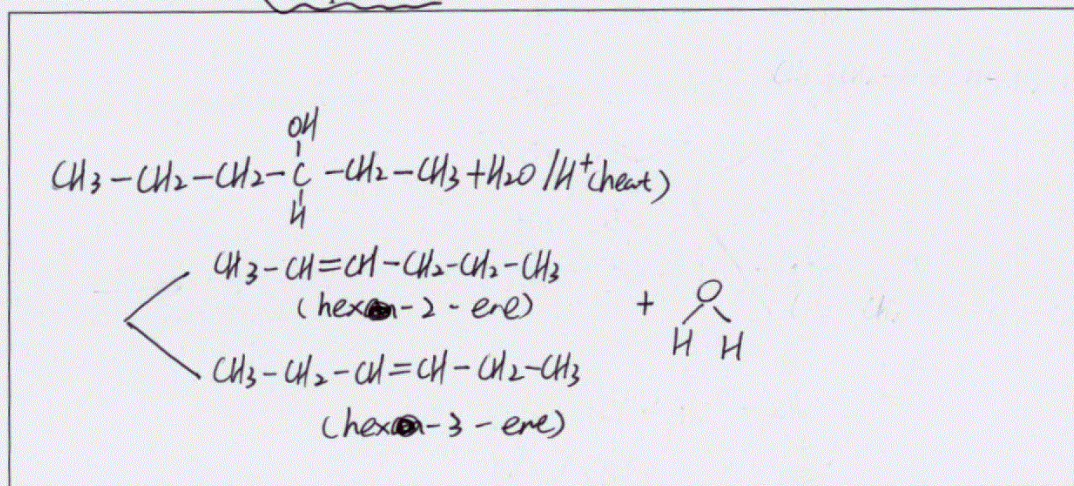 OH
CH3-CH2-CH2-C-CH2-CH3+H2O/H+(heat)
H
CH3-CH=CH-CH2-CH2-CH3
(hex-2-ene)
+
O
H H
CH3-CH2-CH=CH-CH2-CH3
(hex-3-ene)